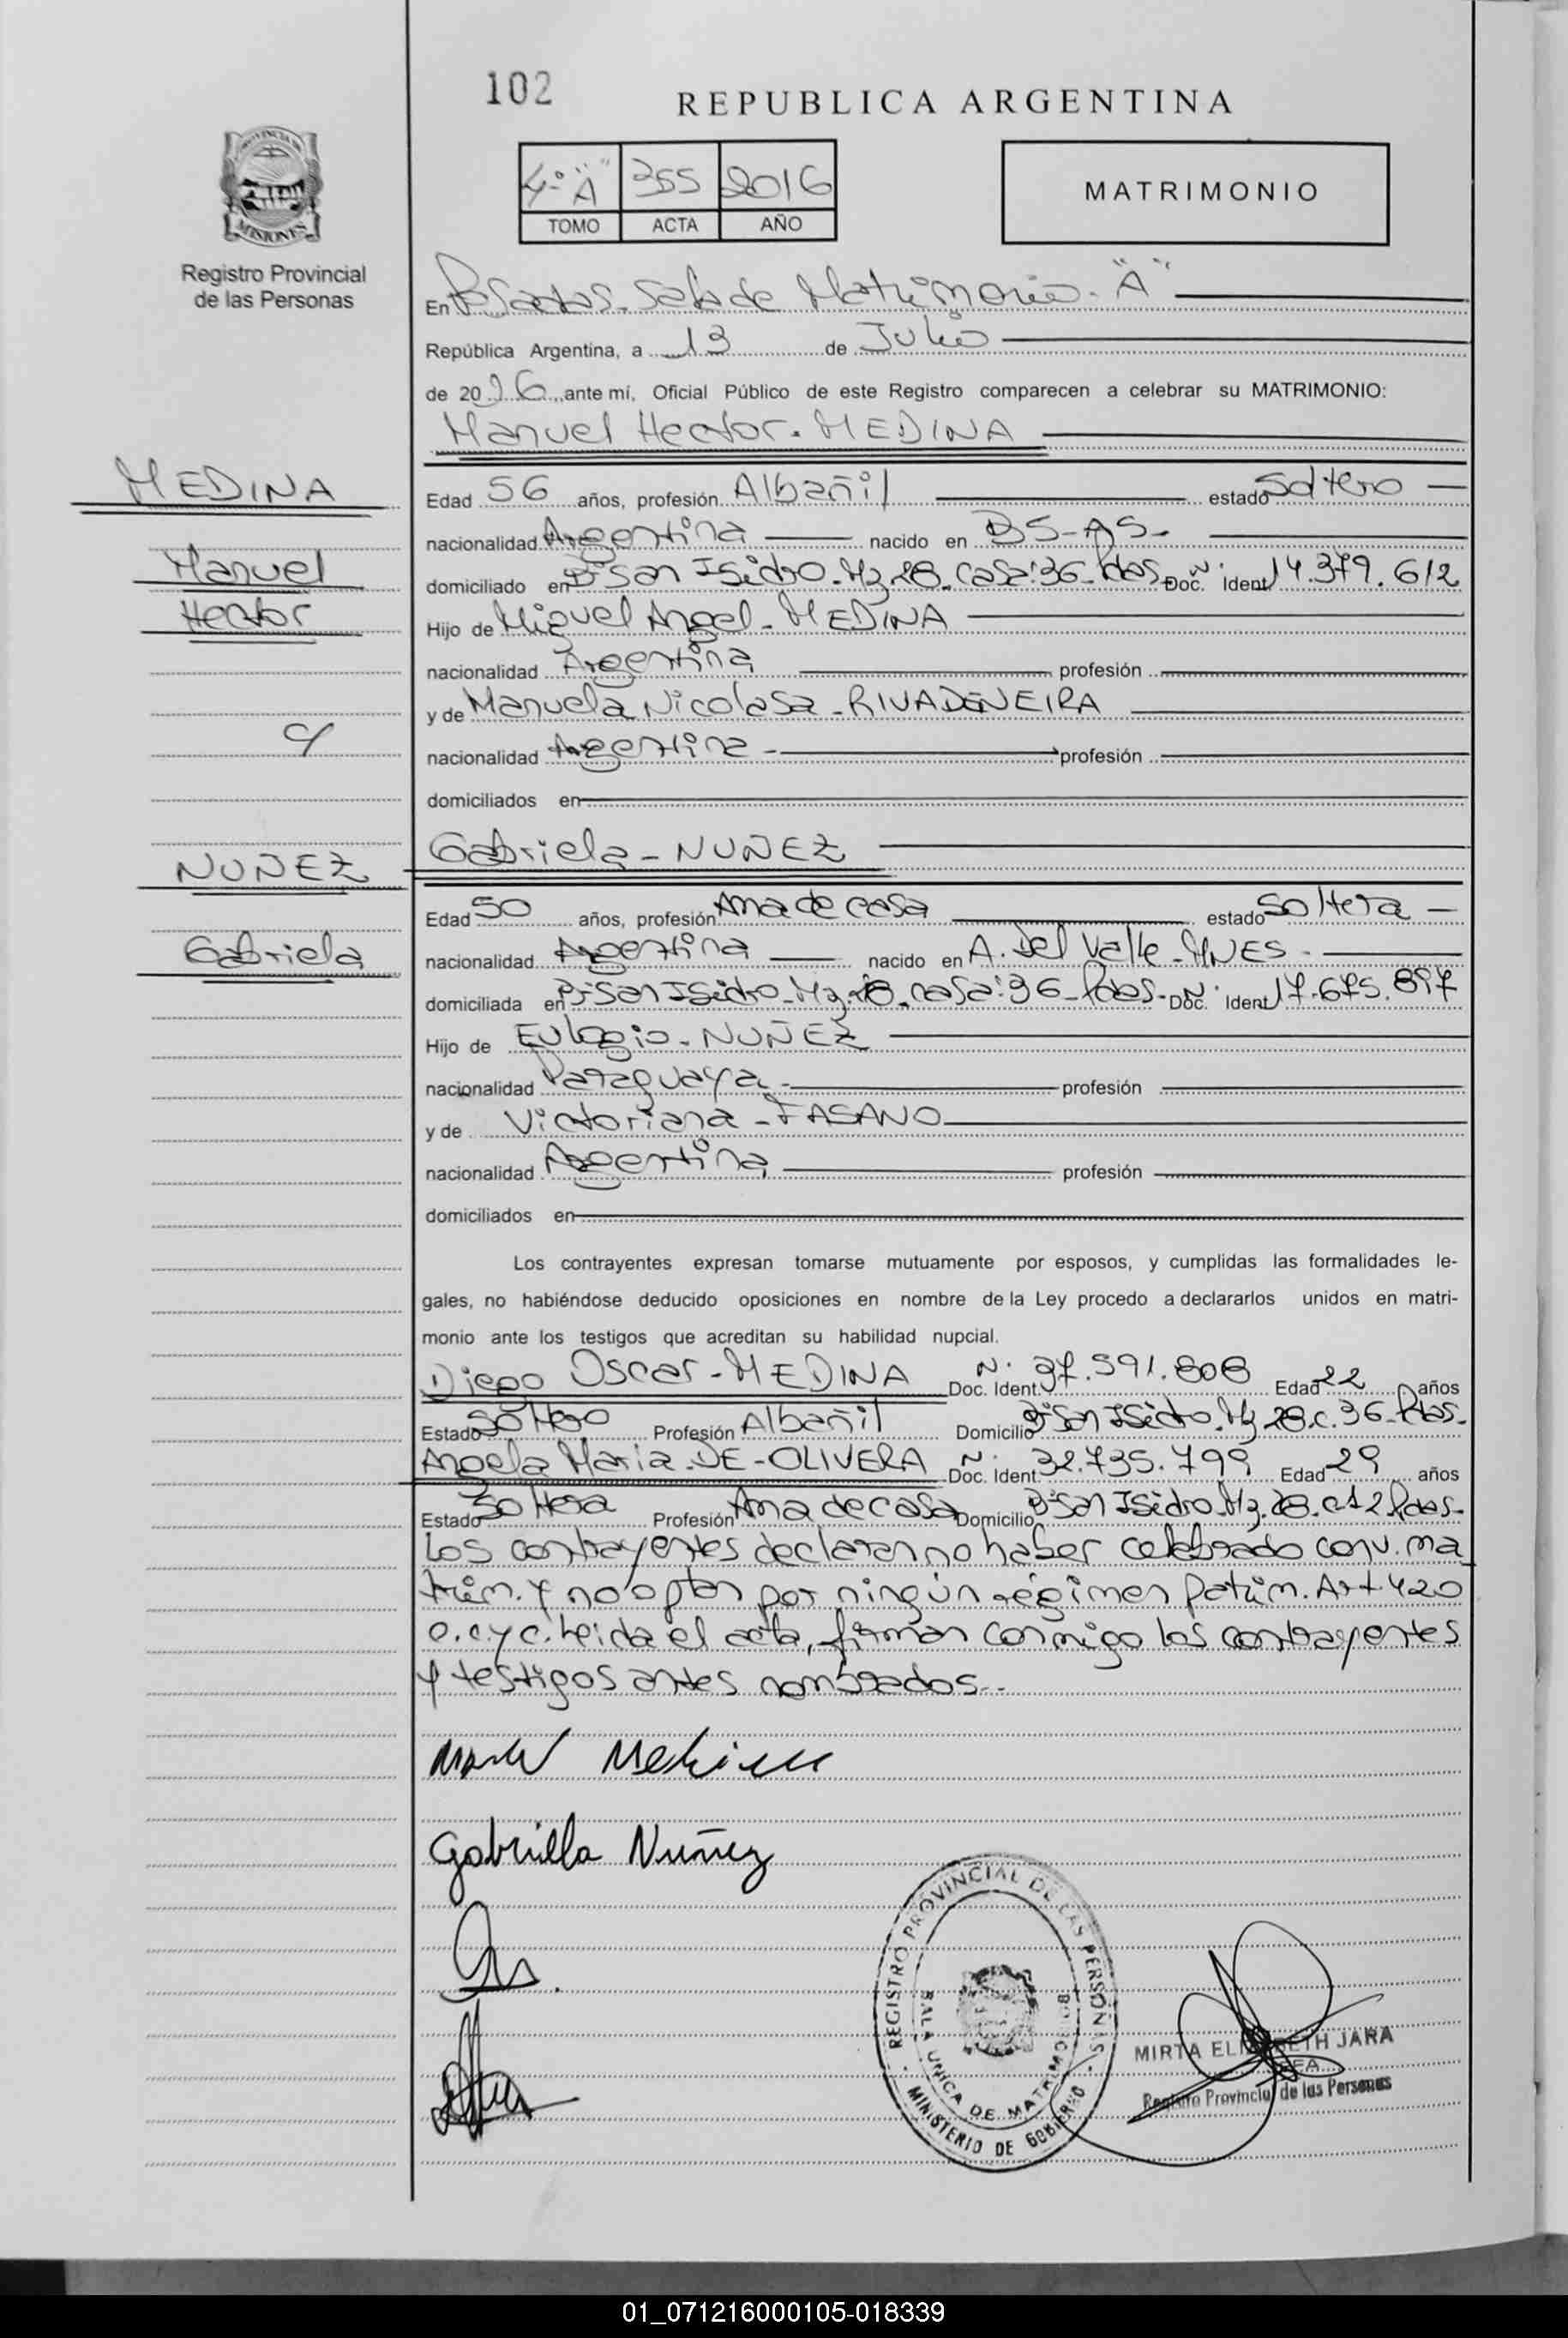 102
REPUBLICA ARGENTINA
4º "A" 355 2016
TOMO ACTA AÑO
MATRIMONIO
PROVINCIA DE
MISIONES
Registro Provincial
de las Personas
En Posadas - Sala de Matrimonio - "A"
República Argentina, a 13 de Julio
de 2016 ante mí, Oficial Público de este Registro comparecen a celebrar su MATRIMONIO:
Manuel Hector - MEDINA
MEDINA
Edad 56 años, profesión Albañil estado soltero
nacionalidad Argentina nacido en BS-AS-
Manuel
domiciliado en Bº San Isidro - Mz. 28 - casa: 36 - Pdas - Doc. Nº Ident 14.379.612
Hector
Hijo de Miguel Angel - MEDINA
nacionalidad Argentina profesión
y de Manuela Nicolasa - RIVADENEIRA
c/
nacionalidad Argentina - profesión
domiciliados en
Gabriela - NUÑEZ
NUÑEZ
Edad 50 años, profesión Ama de casa estado soltera
Gabriela
nacionalidad Argentina nacido en A. Del Valle - MNES -
domiciliada en Bº San Isidro - Mz. 28 - casa: 36 - Pdas - Doc. Nº Ident 17.675.897
Hijo de Eulogio - NUÑEZ
nacionalidad Paraguaya - profesión
y de Victoriana - FASANO
nacionalidad Argentina profesión
domiciliados en
Los contrayentes expresan tomarse mutuamente por esposos, y cumplidas las formalidades le-
gales, no habiéndose deducido oposiciones en nombre de la Ley procedo a declararlos unidos en matri-
monio ante los testigos que acreditan su habilidad nupcial.
Diego Oscar - MEDINA Doc. Ident. Nº 37.591.808 Edad 22 años
Estado soltero Profesión Albañil Domicilio Bº San Isidro - Mz. 28 - c. 36 - Pdas -
Angela Maria - DE - OLIVERA Doc. Ident. Nº 32.735.799 Edad 29 años
Estado soltera Profesión Ama de casa Domicilio Bº San Isidro - Mz. 28 - c. 12 Pdas -
Los contrayentes declaran no haber celebrado conv. ma
trim. y no optan por ningún régimen patrim. Art 420
C. C. y C. Leida el acta, firman conmigo los contrayentes
y testigos antes nombrados.-
Manuel Medina
Gabriella Nuñez
REGISTRO PROVINCIAL DE LAS PERSONAS
SALA UNICA DE MATRIMONIOS
MINISTERIO DE GOBIERNO
MIRTA ELIZABETH JARA
Registro Provincial de las Personas
01_071216000105-018339